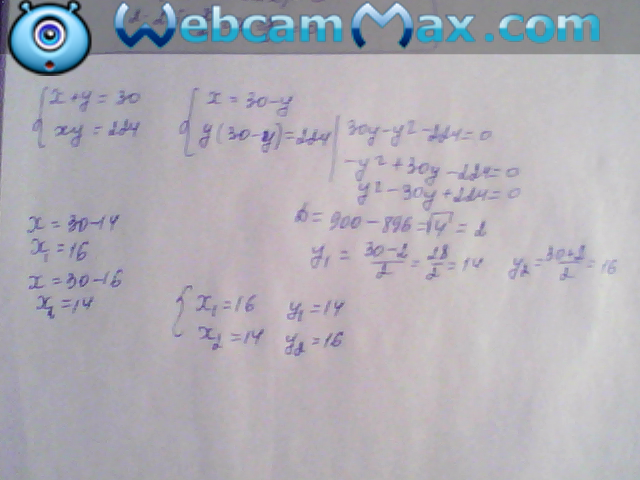 WebcamMax.com
{ x + y = 30
xy = 224
{ x = 30 - y
y(30 - y) = 224 | 30y - y² - 224 = 0
-y² + 30y - 224 = 0
y² - 30y + 224 = 0
D = 900 - 896 = √4 = 2
y₁ = 30-2/2 = 28/2 = 14 y₂ = 30+2/2 = 16
x = 30 - 14
x₁ = 16
x = 30 - 16
x₂ = 14
{ x₁ = 16 y₁ = 14
x₂ = 14 y₂ = 16